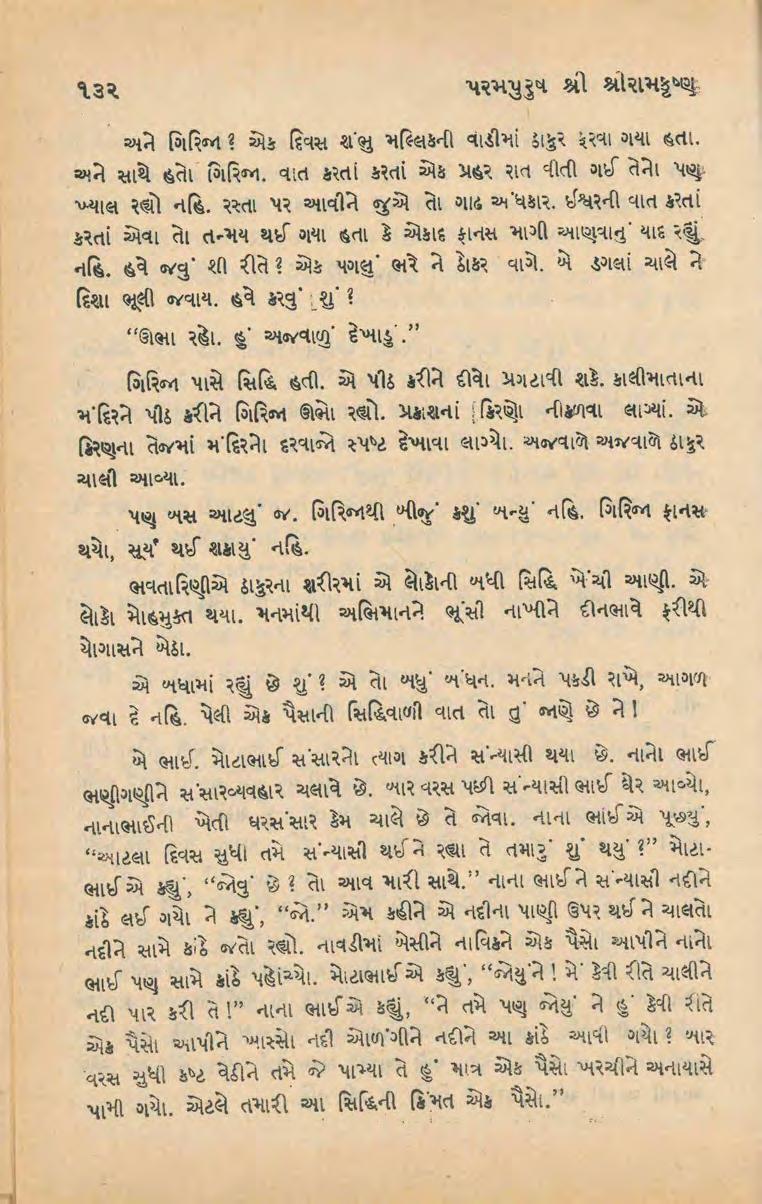 ૧૩૨ પરમપુરુષ શ્રી શ્રીરામકૃષ્ણ
અને ગિરિજા? એક દિવસ શંભુ મલ્લિકની વાડીમાં ઠાકુર ફરવા ગયા હતા.
અને સાથે હતો ગિરિજા. વાત કરતાં કરતાં એક પ્રહર રાત વીતી ગઈ તેનો પણ
ખ્યાલ રહ્યો નહિ. રસ્તા પર આવીને જુએ તો ગાઢ અંધકાર. ઈશ્વરની વાત કરતાં
કરતાં એવા તો તન્મય થઈ ગયા હતા કે એકાદ ફાનસ માગી આણવાનું યાદ રહ્યું
નહિ. હવે જવું શી રીતે? એક પગલું ભરે ને ઠોકર વાગે. બે ડગલાં ચાલે ને
દિશા ભૂલી જવાય. હવે કરવું શું?
“ઊભા રહો. હું અજવાળું દેખાડું.”
ગિરિજા પાસે સિદ્ધિ હતી. એ પીઠ કરીને દીવો પ્રગટાવી શકે. કાલીમાતાના
મંદિરને પીઠ કરીને ગિરિજા ઊભો રહ્યો. પ્રકાશનાં કિરણો નીકળવા લાગ્યાં. એ
કિરણના તેજમાં મંદિરનો દરવાજો સ્પષ્ટ દેખાવા લાગ્યો. અજવાળે અજવાળે ઠાકુર
ચાલી આવ્યા.
પણ બસ આટલું જ. ગિરિજાથી બીજું કશું બન્યું નહિ. ગિરિજા ફાનસ
થયો, સૂર્ય થઈ શકાયું નહિ.
ભવતારિણીએ ઠાકુરના શરીરમાં એ લોકોની બધી સિદ્ધિ ખેંચી આણી. એ
લોકો મોહમુક્ત થયા. મનમાંથી અભિમાનને ભૂંસી નાખીને દીનભાવે ફરીથી
યોગાસને બેઠા.
એ બધામાં રહ્યું છે શું? એ તો બધું બંધન. મનને પકડી રાખે, આગળ
જવા દે નહિ. પેલી એક પૈસાની સિદ્ધિવાળી વાત તો તું જાણે છે ને!
બે ભાઈ. મોટાભાઈ સંસારનો ત્યાગ કરીને સંન્યાસી થયા છે. નાનો ભાઈ
ભણીગણીને સંસારવ્યવહાર ચલાવે છે. બાર વરસ પછી સંન્યાસી ભાઈ ઘેર આવ્યો,
નાનાભાઈની ખેતી ઘરસંસાર કેમ ચાલે છે તે જોવા. નાના ભાઈએ પૂછ્યું,
“આટલા દિવસ સુધી તમે સંન્યાસી થઈને રહ્યા તે તમારું શું થયું?” મોટા-
ભાઈએ કહ્યું, “જોવું છે? તો આવ મારી સાથે.” નાના ભાઈને સંન્યાસી નદીને
કાંઠે લઈ ગયો ને કહ્યું, “જો.” એમ કહીને એ નદીના પાણી ઉપર થઈને ચાલતો
નદીને સામે કાંઠે જતો રહ્યો. નાવડીમાં બેસીને નાવિકને એક પૈસો આપીને નાનો
ભાઈ પણ સામે કાંઠે પહોંચ્યો. મોટાભાઈએ કહ્યું, “જોયુંને! મેં કેવી રીતે ચાલીને
નદી પાર કરી તે!” નાના ભાઈએ કહ્યું, “ને તમે પણ જોયું ને હું કેવી રીતે
એક પૈસો આપીને ખાસ્સો નદી ઓળંગીને નદીને આ કાંઠે આવી ગયો? બાર
વરસ સુધી કષ્ટ વેઠીને તમે જે પામ્યા તે હું માત્ર એક પૈસો ખરચીને અનાયાસે
પામી ગયો. એટલે તમારી આ સિદ્ધિની કિંમત એક પૈસો.”